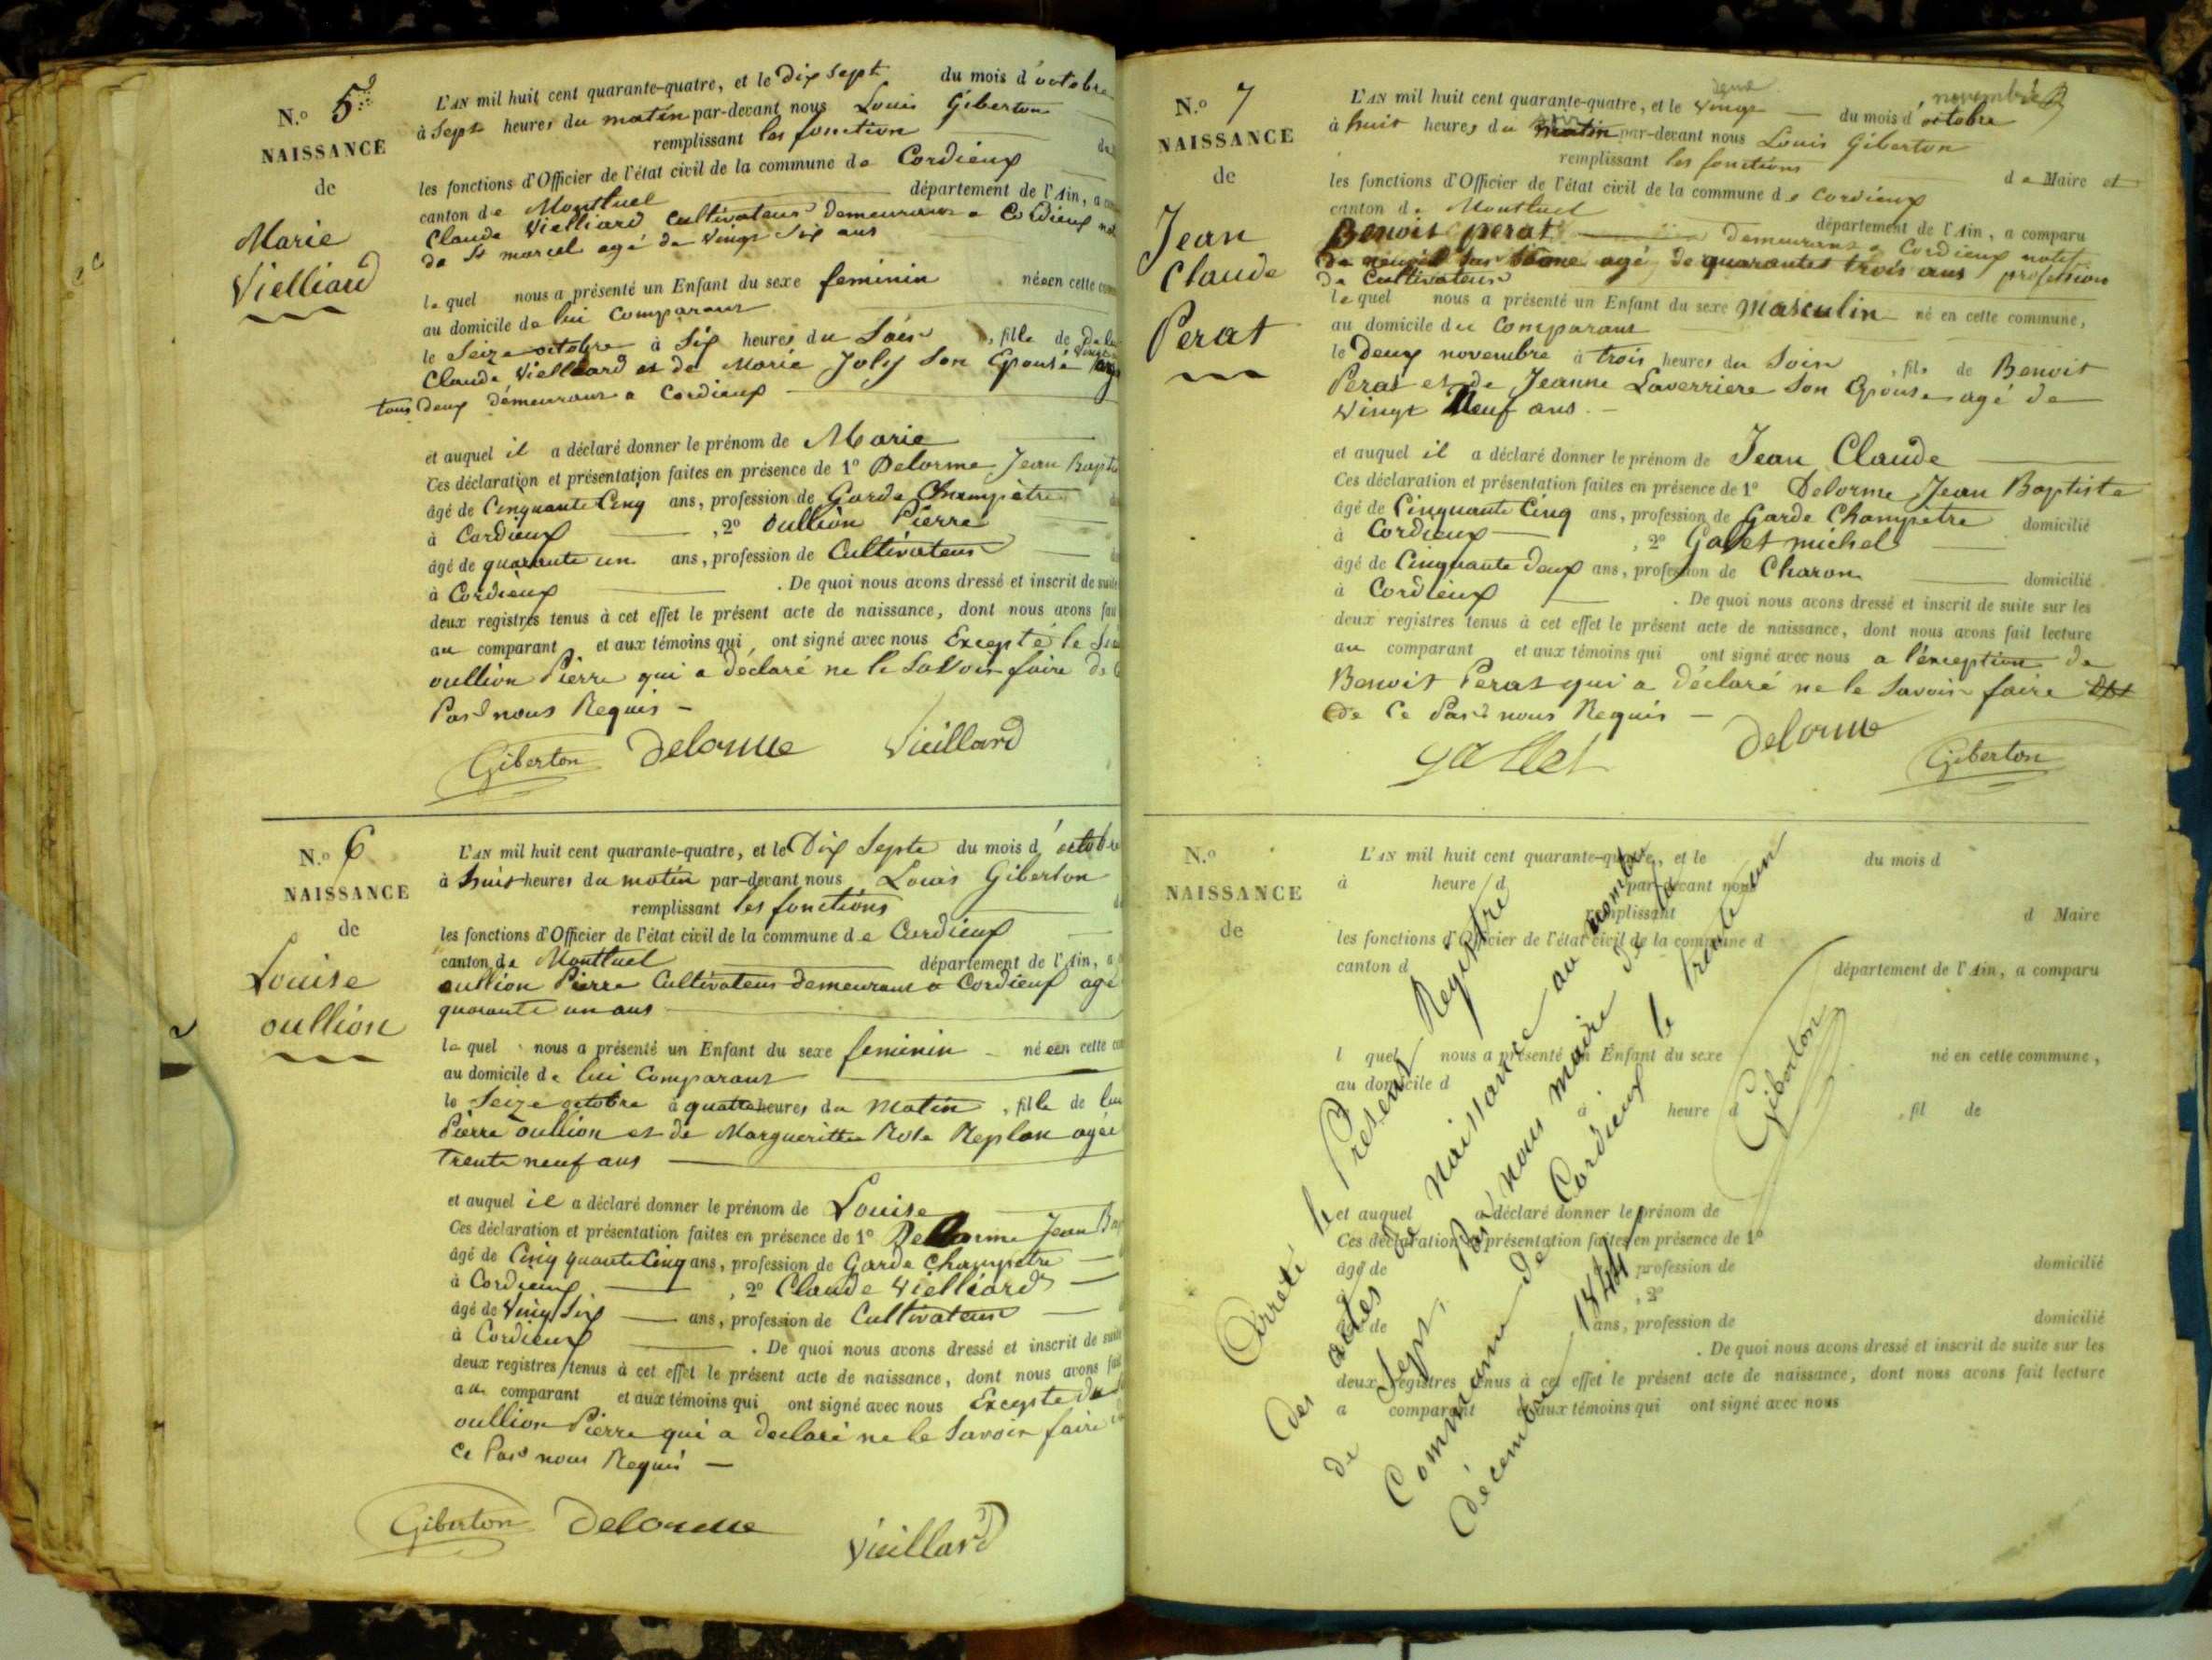 N.º 5
NAISSANCE
de
Marie
Vielliard
L'AN mil huit cent quarante-quatre, et le Dix Sept du mois d'octobre
à Sept heures du matin par-devant nous Louis Giberton
remplissant les fonction
les fonctions d'Officier de l'état civil de la commune de Cordieux
canton de Montluel département de l'Ain, a
Claude Vielliard Cultivateur demeurant a Cordieux
de St marcel agé de vingt Six ans
lequel nous a présenté un Enfant du sexe feminin née en cette
au domicile de lui Comparant
le Seize octobre à Six heures du Soir, fille de
Claude Vielliard et de Marie Joly Son Epouse
tous deux demeurant a Cordieux
et auquel il a déclaré donner le prénom de Marie
Ces déclaration et présentation faites en présence de 1º Delorme Jean
âgé de Cinquante Cinq ans, profession de Garde Champètre
à Cordieux, 2º oullion Pierre
âgé de quarante un ans, profession de Cultivateur
à Cordieux. De quoi nous avons dressé et inscrit de suite
deux registres tenus à cet effet le présent acte de naissance, dont nous avons
au comparant et aux témoins qui ont signé avec nous Excepté le
oullion Pierre qui a déclaré ne le Savoir faire de
Par nous Requis -
Giberton Delorme Vieillard
N.º 6
NAISSANCE
de
Louise
oullion
L'AN mil huit cent quarante-quatre, et le Dix Septe du mois d'octobre
à huit heures du matin par-devant nous Louis Giberton
remplissant les fonctions
les fonctions d'Officier de l'état civil de la commune de Cordieux
canton de Montluel département de l'Ain,
oullion Pierre Cultivateur demeurant a Cordieux agé
quarante un ans
lequel nous a présenté un Enfant du sexe feminin née en cette
au domicile de lui Comparant
le Seize octobre à quatre heures du Matin, fille de
Pierre oullion et de Margueritte Rose Replan agée
trente neuf ans
et auquel il a déclaré donner le prénom de Louise
Ces déclaration et présentation faites en présence de 1º Delorme Jean
âgé de Cinq quante Cinq ans, profession de Garde Champetre
à Cordieux, 2º Claude Vielliard
âgé de Vingt Six ans, profession de Cultivateur
à Cordieux. De quoi nous avons dressé et inscrit de suite
deux registres tenus à cet effet le présent acte de naissance, dont nous avons
au comparant et aux témoins qui ont signé avec nous Excepte du
oullion Pierre qui a declaré ne le Savoir faire
Ce Par nous Requis -
Giberton Delorme Vieillard
N.º 7
NAISSANCE
de
Jean
Claude
Perat
novembre
L'AN mil huit cent quarante-quatre, et le vingt du mois d'octobre
à huit heures du matin par-devant nous Louis Giberton
remplissant les fonctions de Maire et
les fonctions d'Officier de l'état civil de la commune de Cordieux
canton de Montluel département de l'Ain, a comparu
Benoit perat demeurant a Cordieux notif
agé de quarantes trois ans profession
de Cultivateur
lequel nous a présenté un Enfant du sexe Masculin né en cette commune,
au domicile du Comparant
le Deux novembre à trois heures du Soir, fils de Benoit
Perat et de Jeanne Laverriere Son Epouse agé de
Vingt Neuf ans. -
et auquel il a déclaré donner le prénom de Jean Claude
Ces déclaration et présentation faites en présence de 1º Delorme Jean Baptiste
âgé de Cinquante Cinq ans, profession de Garde Champètre domicilié
à Cordieux, 2º Galet michel
âgé de Cinquante deux ans, profession de Charon domicilié
à Cordieux. De quoi nous avons dressé et inscrit de suite sur les
deux registres tenus à cet effet le présent acte de naissance, dont nous avons fait lecture
au comparant et aux témoins qui ont signé avec nous a l'exception de
Benoit Perat qui a déclaré ne le Savoir faire
de Ce Par nous Requis -
Gallet Delorme Giberton
N.º
NAISSANCE
de
L'AN mil huit cent quarante-quatre, et le du mois d
à heure d par-devant nous
remplissant d Maire
les fonctions d'Officier de l'état civil de la commune d
canton d département de l'Ain, a comparu
l quel nous a présenté un Enfant du sexe né en cette commune,
au domicile d
à heure d, fil de
et auquel a déclaré donner le prénom de
Ces déclaration et présentation faites en présence de 1º
âgé de profession de domicilié
, 2º
âgé de ans, profession de domicilié
. De quoi nous avons dressé et inscrit de suite sur les
deux registres tenus à cet effet le présent acte de naissance, dont nous avons fait lecture
a comparant et aux témoins qui ont signé avec nous
Arrêté le Présent Registre
des actes de Naissance au nombre
de Sept, Par nous maire de la
Commune de Cordieux le trente un
décembre 1844
Giberton